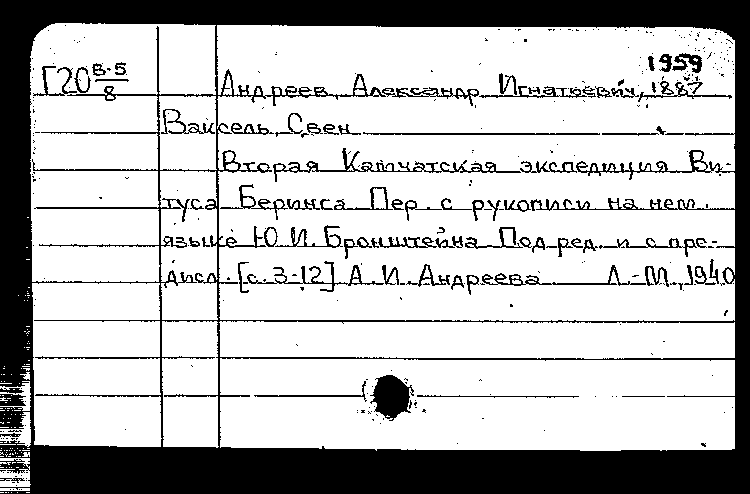 1959
Г20 В-5/8 Андреев, Александр Игнатьевич, 1887
Ваксель, Свен
Вторая Камчатская экспедиция Ви-
туса Беринга Пер. с рукописи на нем.
языке Ю.И. Бронштейна Под ред. и с пре-
дисл. [с. 3-12] А.И. Андреева Л.-М., 1940